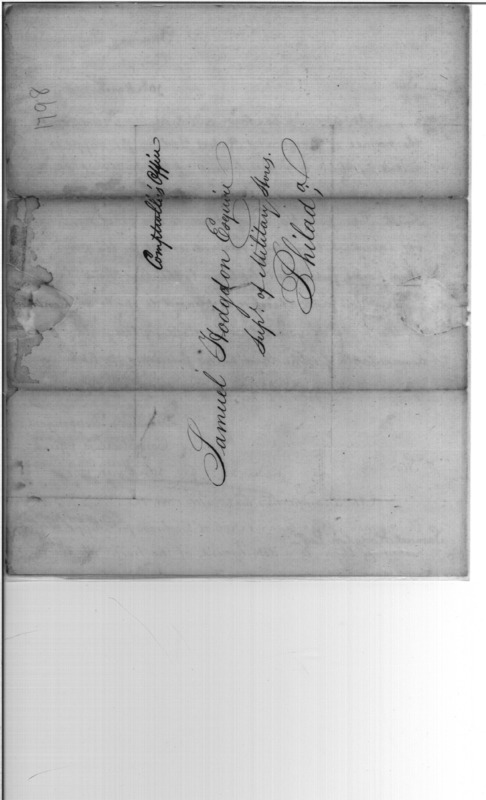 1798
Comptroller's Office
Samuel Hodgdon Esquire
Supt. of Military Stores.
Philada,